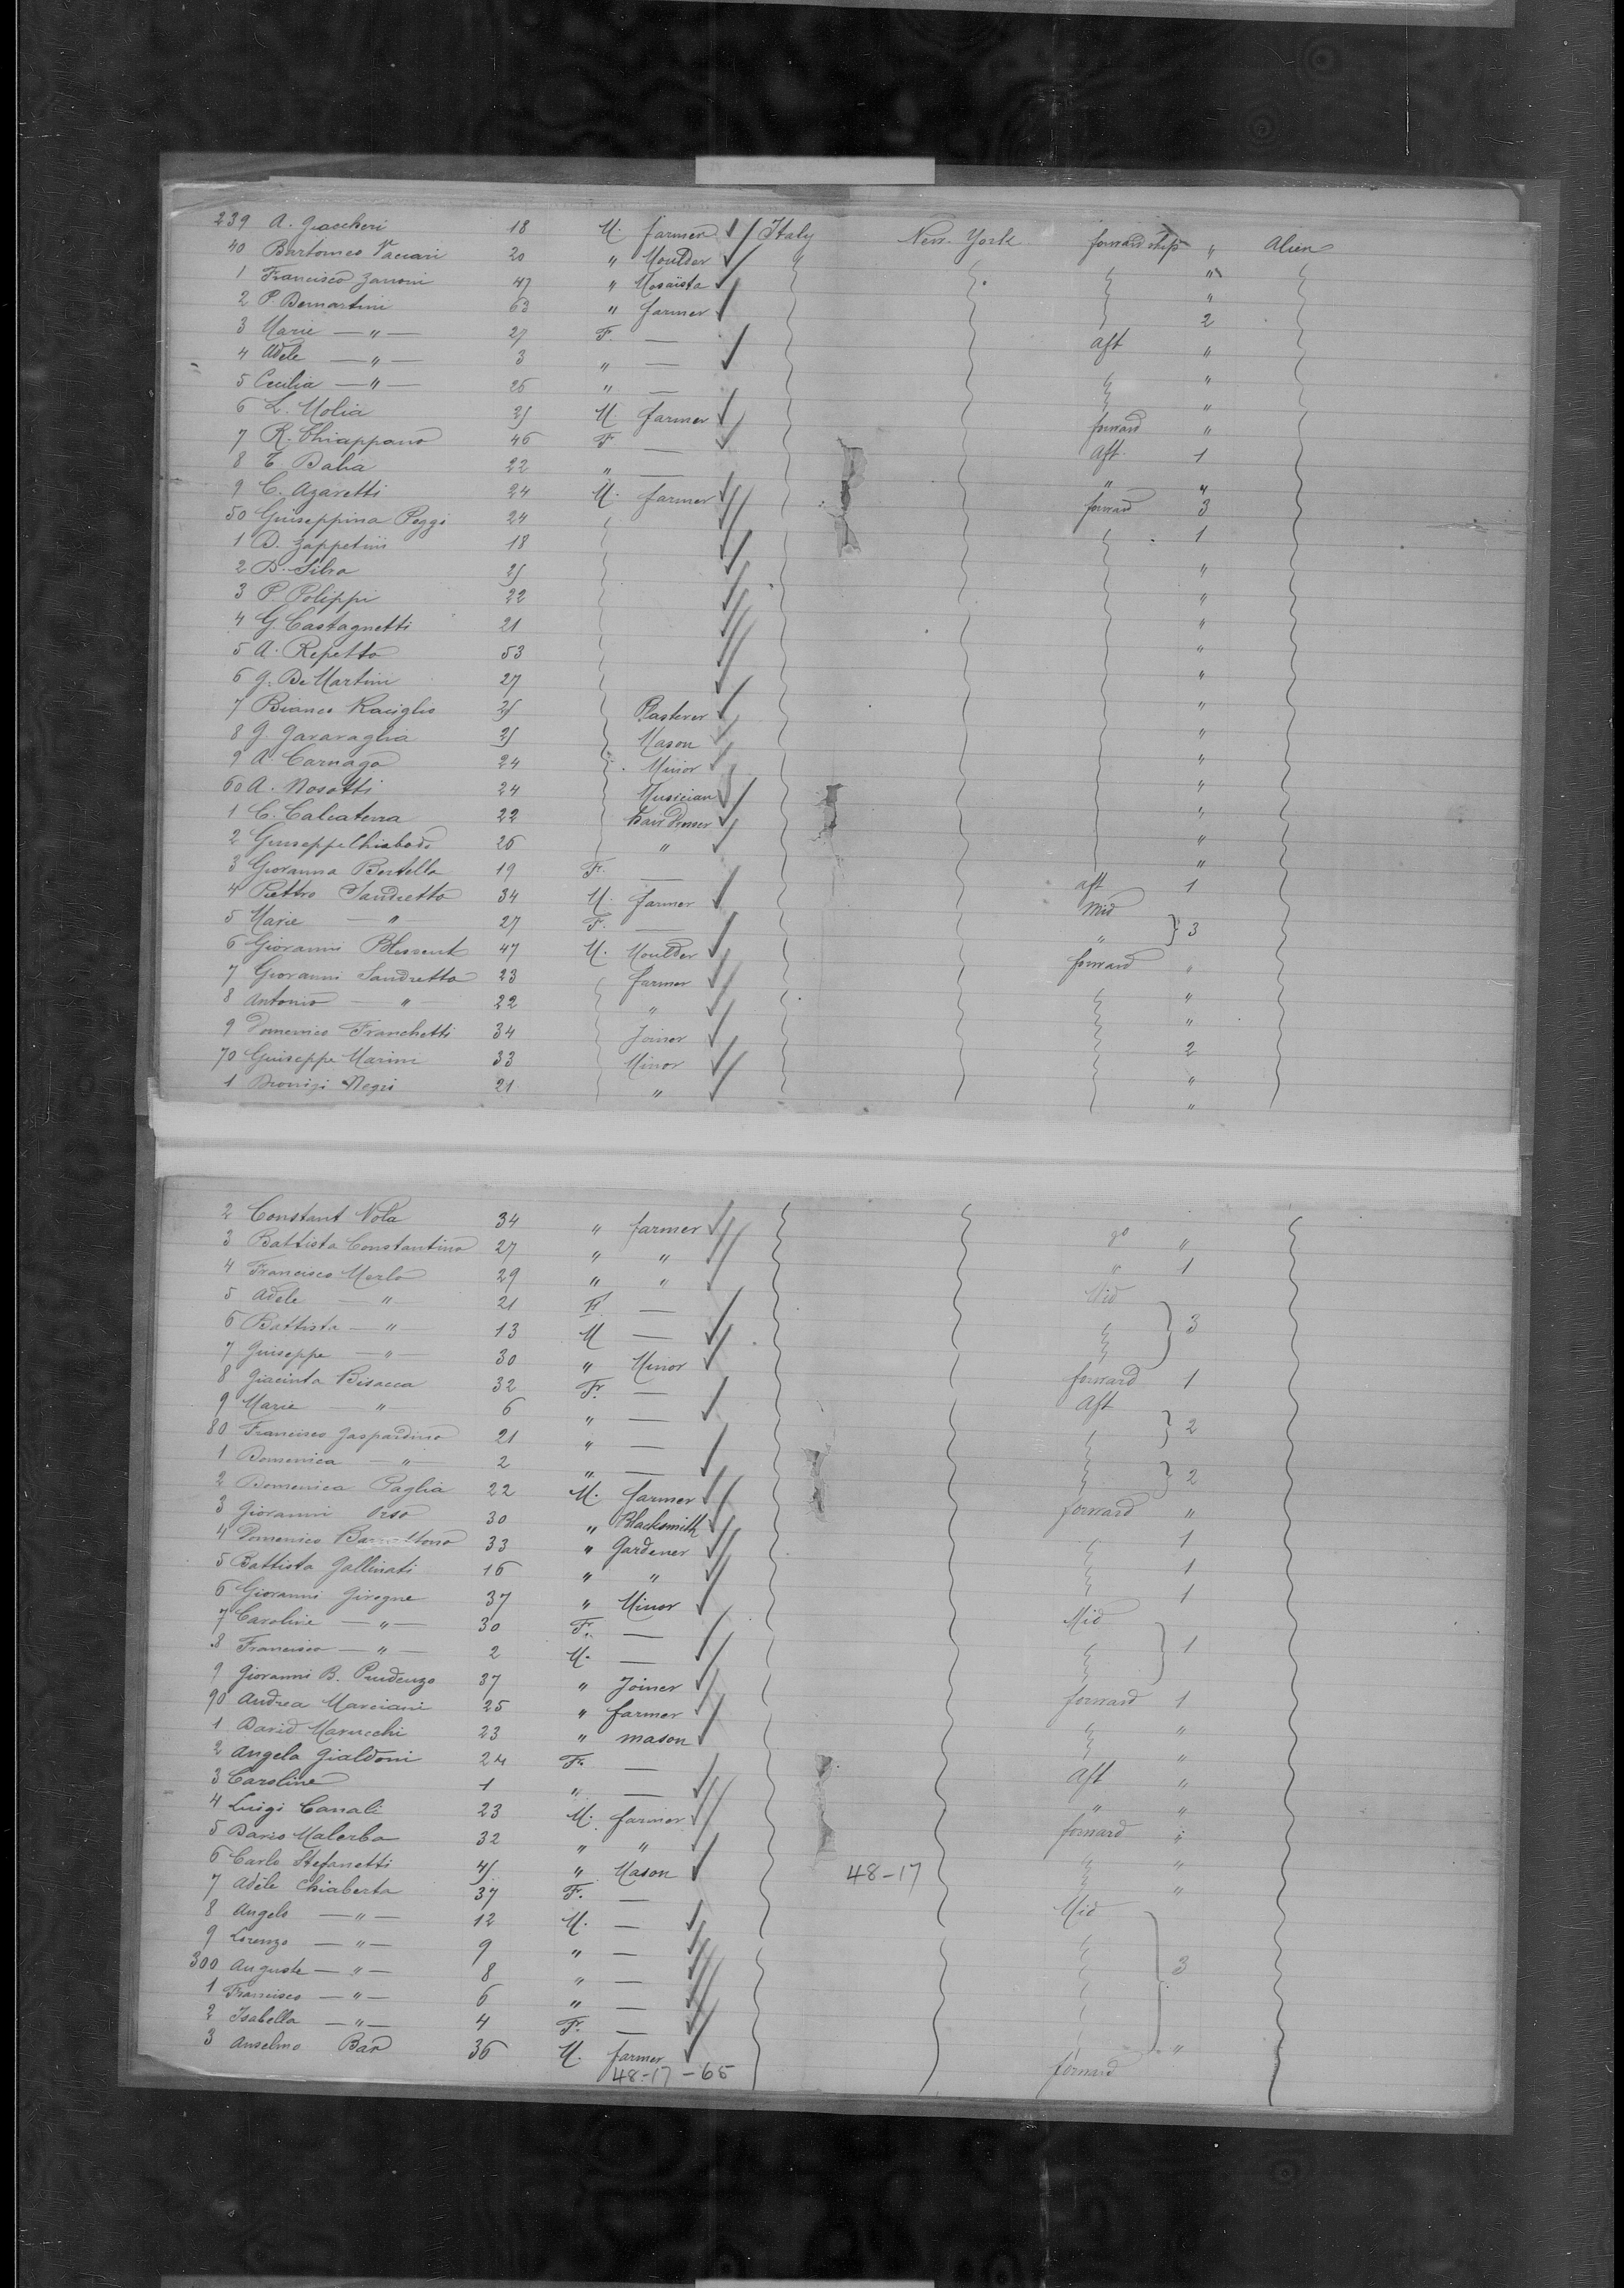 239 A. Gioscheri 18 M. farmer Italy New York forward ship " Alien
40 Bartomeo Vaccari 20 " Moulder " "
1 Francisco Zanoni 47 " Mosaista "
2 P. Bernartini 63 " farmer 2
3 Marie — " — 27 F. — aft "
4 Adele — " — 3 " — "
5 Cecilia — " — 26 " — "
6 L. Molia 35 M. farmer forward "
7 R. Chiappano 46 F — Aft. 1
8 T. Balia 22 " — " "
9 C. Azaretti 24 M. farmer forward 3
50 Guiseppina Poggi 24 1
1 D. Zappetini 18 "
2 D. Silva "
3 P. Polippi 22 "
4 G. Castagnetti 21 "
5 A. Repetto 53 "
6 G. De Martini 27 "
7 Bianco Raciglio Plasterer "
8 G. Garavaglia Mason "
9 A. Carnago 24 Minor "
60 A. Nosotti 24 Musician "
1 C. Calcaterra 22 hairdresser "
2 Guiseppe Chiabodo 26 " "
3 Giovanna Bertella 19 F. — aft 1
4 Piettro Sandretto 34 M. farmer Mid
5 Marie — " 27 F. — " 3
6 Giovanni Blessent 47 M. Moulder forward "
7 Giovanni Sandretto 23 farmer "
8 Antonio — " — 22 " "
9 Domenico Franchetti 34 Joiner 2
70 Guiseppe Marini 33 Minor "
1 Dionigi Negri 21 " "
2 Constant Nola 34 " farmer go "
3 Battista Constantino 27 " " " 1
4 Francisco Merlo 29 " " Mid
5 Adele — " 21 F. — 3
6 Battista — " — 13 M —
7 Guiseppe — " — 30 " Minor forward 1
8 Giacinta Bisacca 32 F. — Aft
9 Marie — " 6 " — 2
80 Francisco Gaspardino 21 " —
1 Domenica — " — 2 " — 2
2 Domenica Paglia 22 M. farmer forward "
3 Giovanni Orso 30 " Blacksmith 1
4 Domenico 33 " Gardener 1
5 Battista Gallinati 16 " " 1
6 Giovanni Girogne 37 " Minor Mid
7 Caroline — " — 30 F. — 1
8 Francisco — " — 2 M. —
9 Giovanni B. Prudenzo 37 " Joiner forward 1
90 Andrea Marciani 25 " farmer "
1 David Marucchi 23 " mason "
2 Angela Gialdoni 24 F. — Aft "
3 Caroline 1 " — " "
4 Luigi Canali 23 M. farmer forward "
5 Dario Malerba 32 " " "
6 Carlo Stefanetti " Mason 48-17 "
7 Adèle Chiaberta 37 F. — Mid
8 Angelo — " — 12 M. —
9 Lorenzo — " — 9 " —
300 Auguste — " — 8 " — 3
1 Francisco — " — 6 " —
2 Isabella — " — 4 F. —
3 Anselmo Bar 36 M. farmer forward "
48-17-65